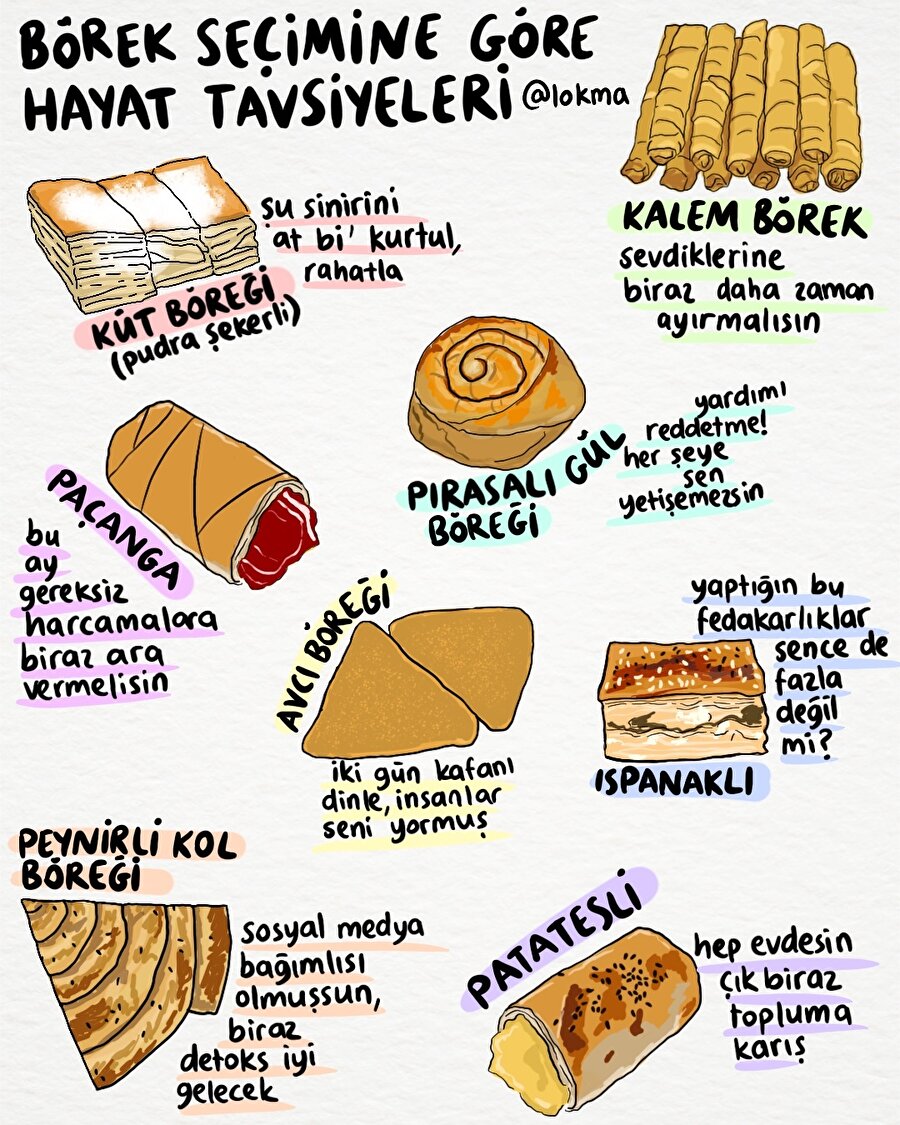 BÖREK SEÇİMİNE GÖRE
HAYAT TAVSİYELERİ @lokma
KALEM BÖREK
sevdiklerine
biraz daha zaman
ayırmalısın
şu sinirini
at bi' kurtul,
rahatla
KÜT BÖREĞİ
(pudra şekerli)
PIRASALI GÜL
BÖREĞİ
yardımı
reddetme!
her şeye
sen
yetişemezsin
PAÇANGA
bu
ay
gereksiz
harcamalara
biraz ara
vermelisin
AVCI BÖREĞİ
iki gün kafanı
dinle, insanlar
seni yormuş
yaptığın bu
fedakarlıklar
sence de
fazla
değil
mi?
ISPANAKLI
PEYNİRLİ KOL
BÖREĞİ
sosyal medya
bağımlısı
olmuşsun,
biraz
detoks iyi
gelecek
PATATESLİ
hep evdesin
çık biraz
topluma
karış